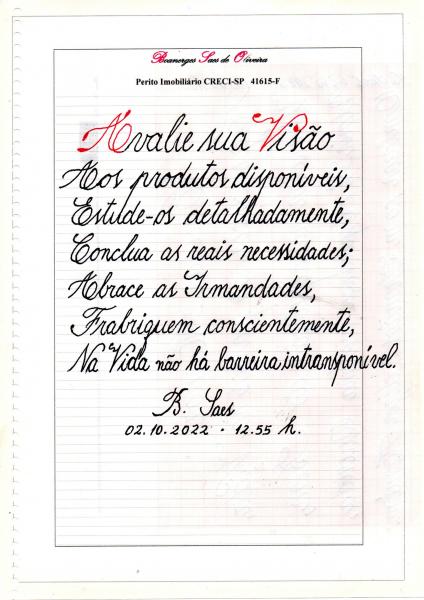 Boanerges Saes de Oliveira
Perito Imobiliário CRECI-SP 41615-F
Avalie sua Visão
Aos produtos disponíveis,
Estude-os detalhadamente,
Conclua as reais necessidades;
Abrace as Irmandades,
Frabriquem conscientemente,
Na Vida não há barreira intransponível.
B. Saes
02.10.2022 · 12.55 h.